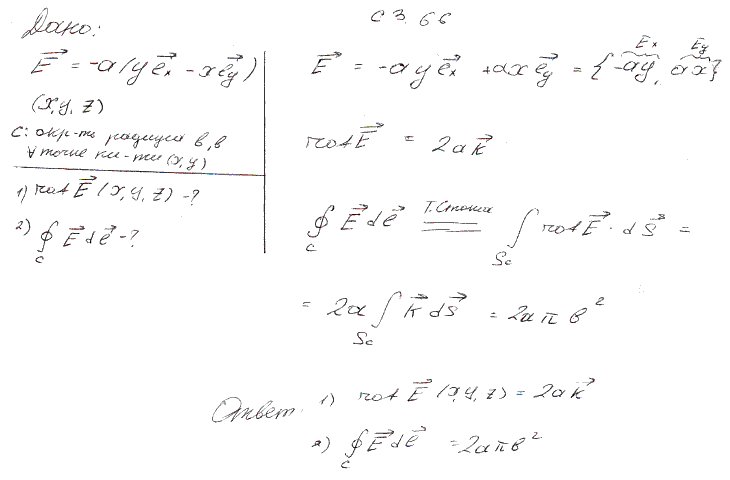 Дано:
E⃗ = -a(y e⃗ₓ - x e⃗ᵧ)
(x, y, z)
C: окр-ть радиуса в, в
∀ точке пл-ти (x, y)
1) rot E⃗ (x, y, z) - ?
2) ∮_C E⃗ d e⃗ - ?
С 3.66
E⃗ = -a y e⃗ₓ + a x e⃗ᵧ = {-ay, ax}
Eₓ Eᵧ
rot E⃗ = 2a k⃗
∮_C E⃗ d e⃗ = т. Стокса ∫_Sc rot E⃗ · d S⃗ =
= 2a ∫_Sc k⃗ d S⃗ = 2a π в²
Ответ.
1) rot E⃗ (x, y, z) = 2a k⃗
2) ∮_C E⃗ d e⃗ = 2a π в²